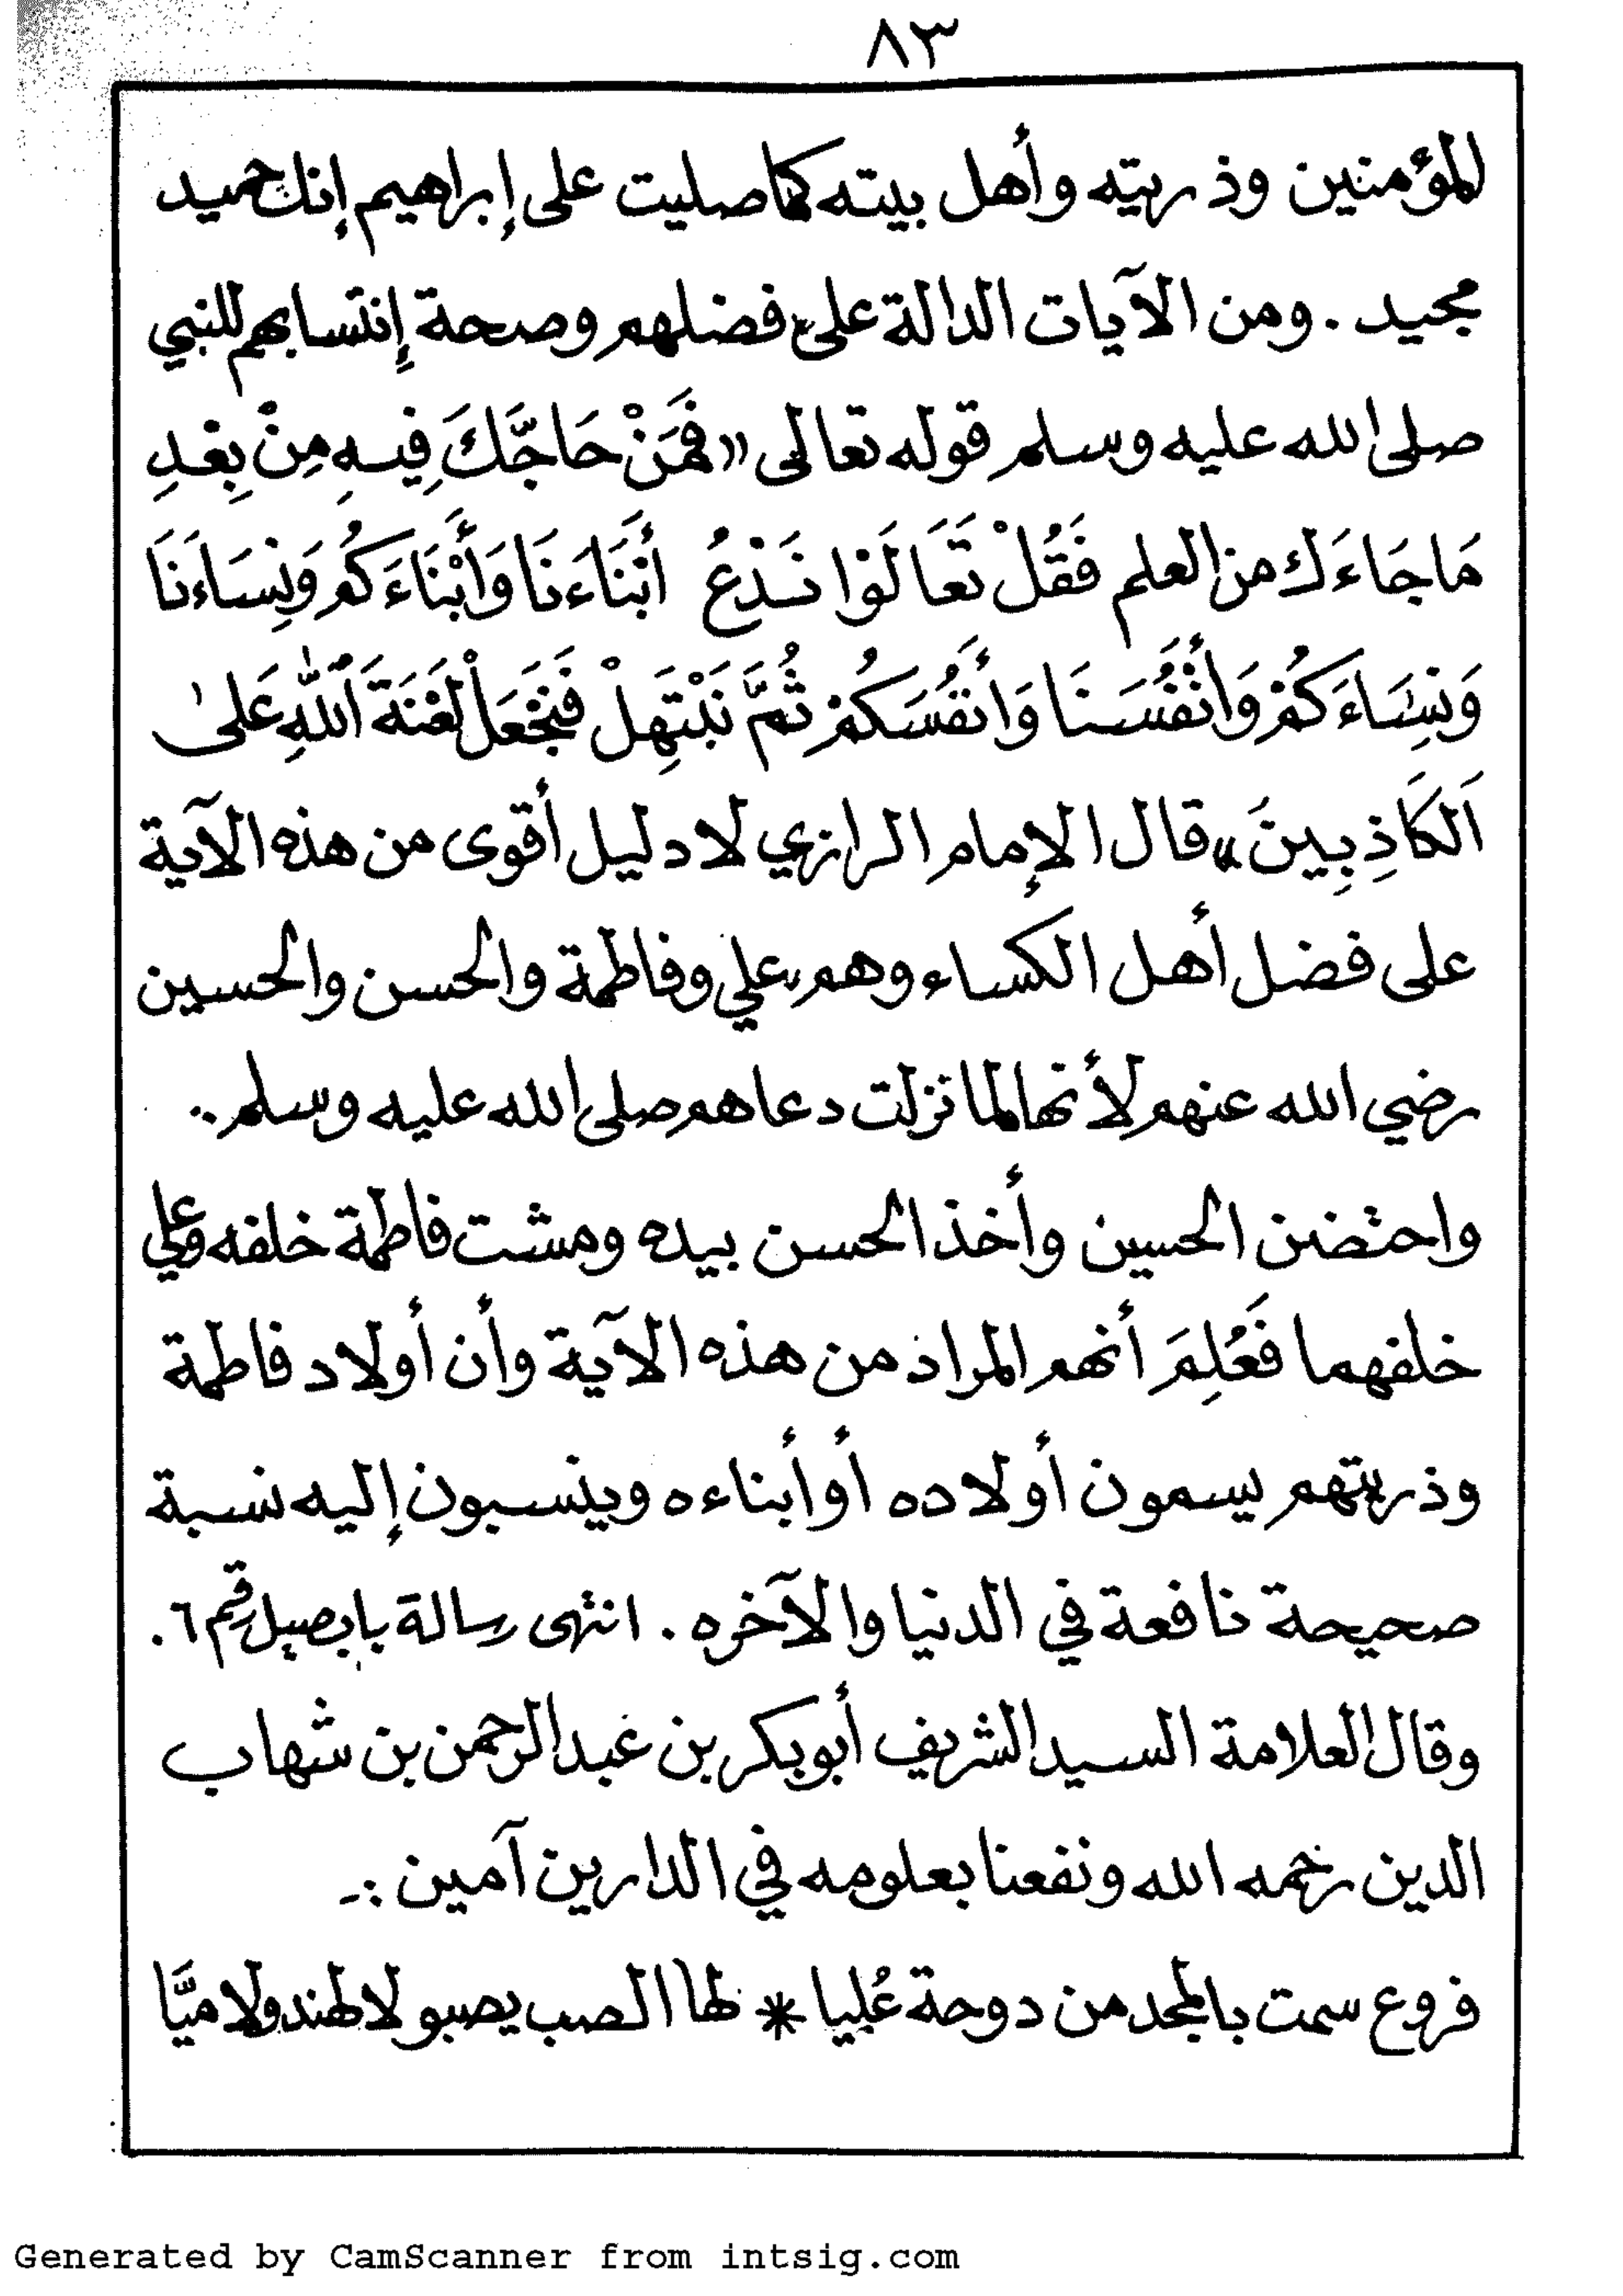 ٨٣
المؤمنين وذريته وأهل بيته كما صليت على إبراهيم إنك حميد
مجيد . ومن الآيات الدالة على فضلهم وصحة إنتسابهم للنبي
صلى الله عليه وسلم قوله تعالى «فَمَنْ حَاجَّكَ فِيهِ مِنْ بَعْدِ
مَا جَاءَكَ من العلم فَقُلْ تَعَالَوْا نَدْعُ أَبْنَاءَنَا وَأَبْنَاءَكُمْ وَنِسَاءَنَا
وَنِسَاءَكُمْ وَأَنْفُسَنَا وَأَنْفُسَكُمْ ثُمَّ نَبْتَهِلْ فَنَجْعَلْ لَعْنَةَ اللَّهِ عَلَى
الْكَاذِبِينَ» قال الإمام الرازي لا دليل أقوى من هذه الآية
على فضل أهل الكساء وهم علي وفاطمة والحسن والحسين
رضي الله عنهم لأنها لما نزلت دعاهم صلى الله عليه وسلم ..
واحتضن الحسين وأخذ الحسن بيده ومشت فاطمة خلفه وعلي
خلفهما فَعُلِمَ أنهم المراد من هذه الآية وأن أولاد فاطمة
وذريتهم يسمون أولاده أو أبناءه وينسبون إليه نسبة
صحيحة نافعة في الدنيا والآخره . انتهى رسالة بابصيل رقم ٦ .
وقال العلامة السيد الشريف أبوبكر بن عبد الرحمن بن شهاب
الدين رحمه الله ونفعنا بعلومه في الدارين آمين :-
فروع سمت بالمجد من دوحة عُليا * لها الصب يصبو لا لهند ولا ميَّا
Generated by CamScanner from intsig.com